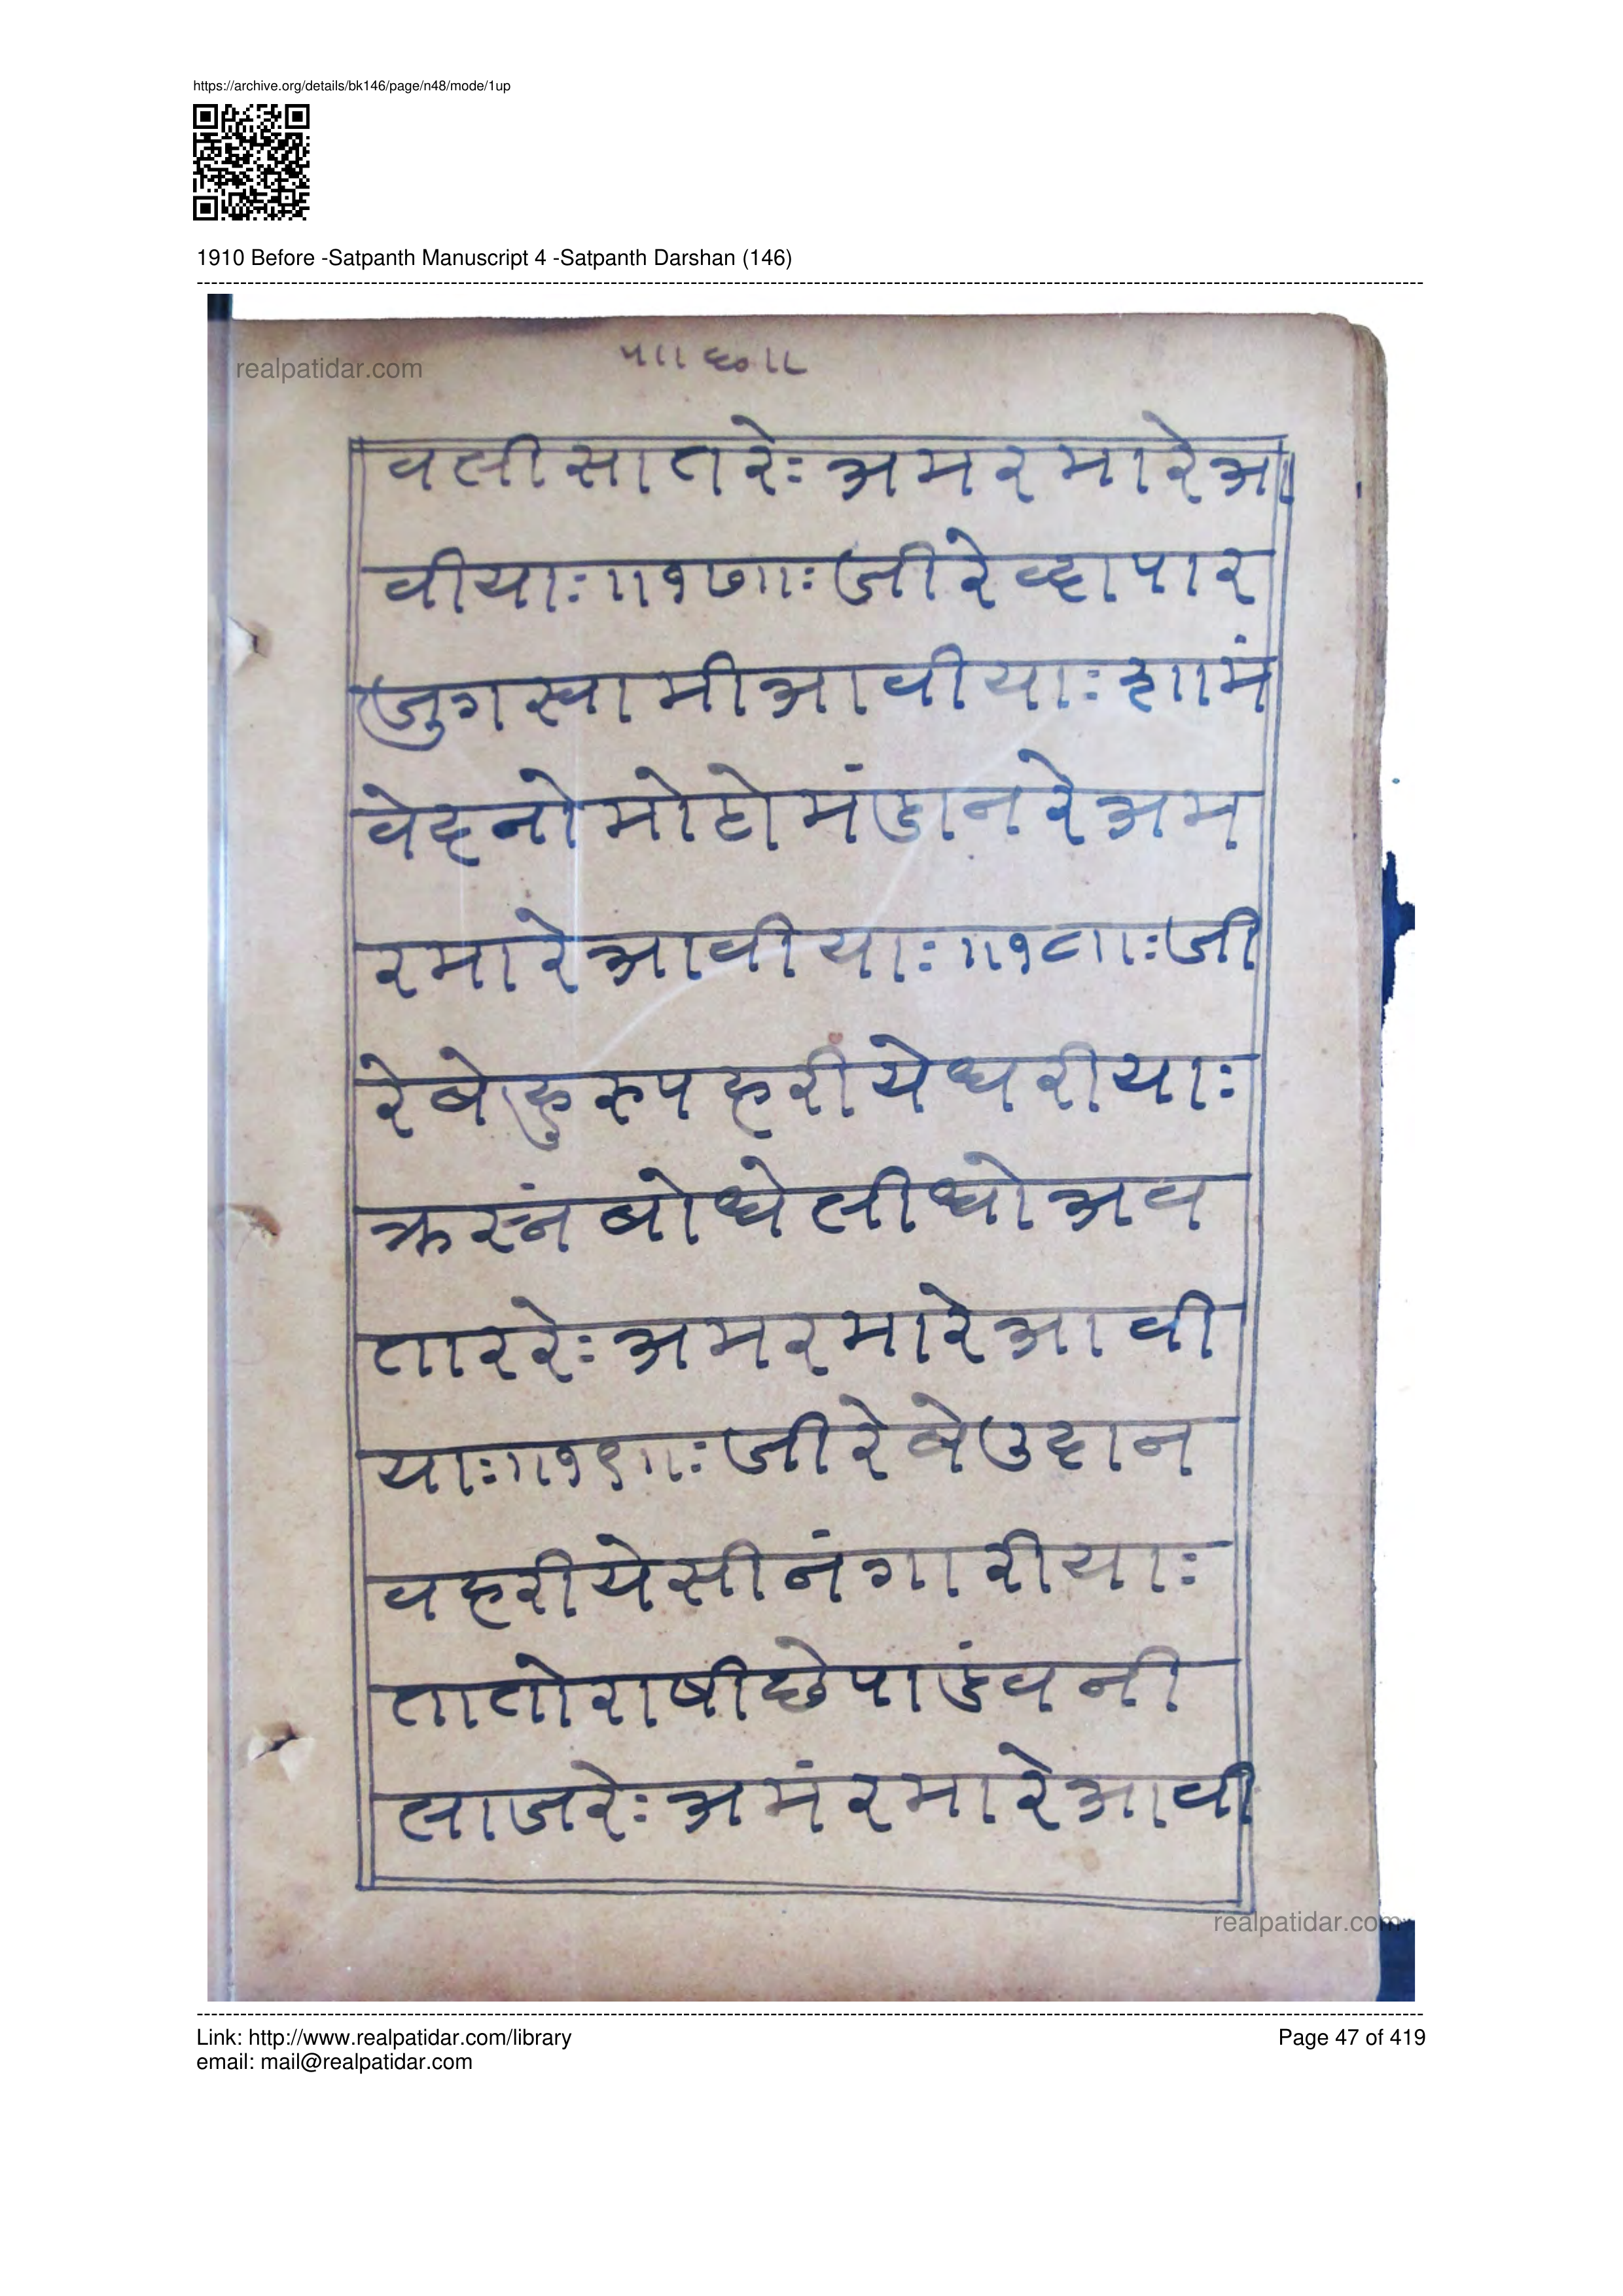 https://archive.org/details/bk146/page/n48/mode/1up
1910 Before -Satpanth Manuscript 4 -Satpanth Darshan (146)
realpatidar.com
वलीसातरेः अमरमारेआ
वीयाः॥१७॥ः जीरेद्वापार
जुगस्वामीआवीयाः
वेहनोमोटोमंडानरेअम
रमारेआवीयाः॥१८॥ः जी
रेबेहुरुपहरीयेधरीयाः
क्रस्नंबोधेलीधोअव
ताररेः अमरमारेआवी
याः॥१९॥ः जीरेबेउदान
वहरीयेसीनंगारीयाः
तातोराषीछेपाडंवनी
लाजरेः अमंरमारेआवी
realpatidar.com
Link: http://www.realpatidar.com/library
Page 47 of 419
email: mail@realpatidar.com